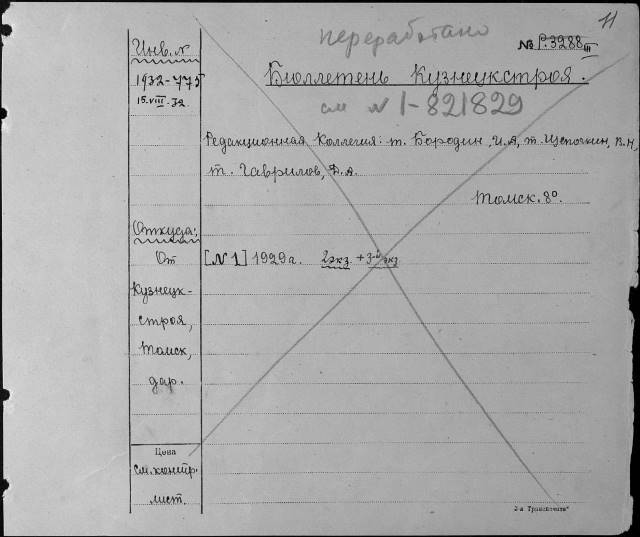 11
переработано
№ P.3288 III
Инв. №
1932-775
15.VIII.32.
Бюллетень Кузнецкстроя.
см № 1-821829
Редакционная Коллегия: т. Бородин, И.А, т. Щепочкин, В.Н,
т. Гаврилов, Д.А.
Томск. 8º.
Откуда:
От
Кузнецк-
строя,
Томск,
дар.
[№ 1] 1929 г. 2 экз. + 3-й экз.
Цена
см. контр.
лист.